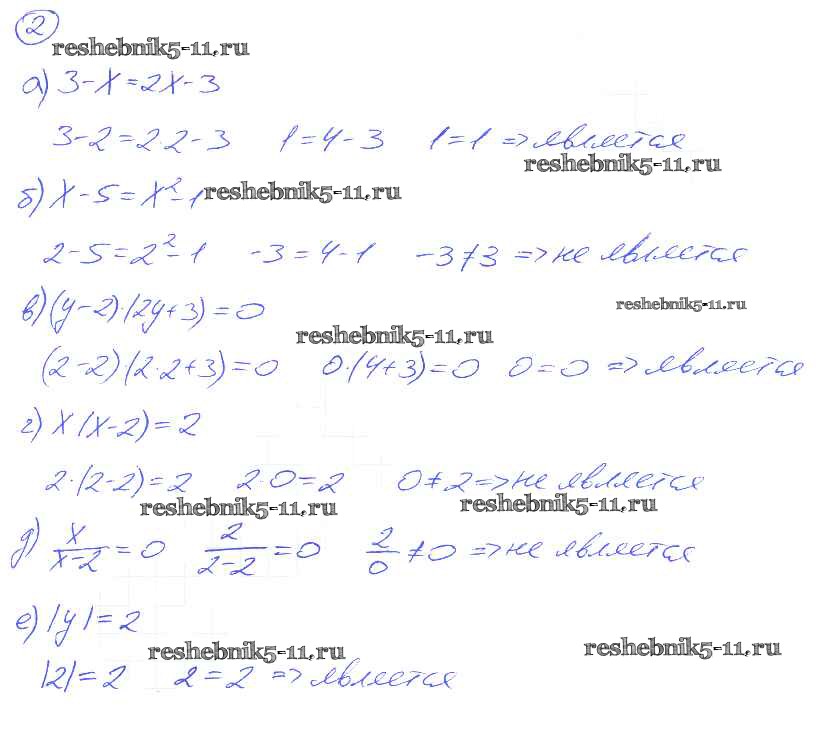 2
reshebnik5-11.ru
а) 3-x=2x-3
3-2=2·2-3 1=4-3 1=1 => является
reshebnik5-11.ru
б) x-5=x²-1 reshebnik5-11.ru
2-5=2²-1 -3=4-1 -3≠3 => не является
в) (y-2)·(2y+3)=0 reshebnik5-11.ru
reshebnik5-11.ru
(2-2)(2·2+3)=0 0·(4+3)=0 0=0 => является
г) x(x-2)=2
2·(2-2)=2 2·0=2 0≠2 => не является
reshebnik5-11.ru reshebnik5-11.ru
д) x/(x-2)=0 2/(2-2)=0 2/0≠0 => не является
е) |y|=2
reshebnik5-11.ru reshebnik5-11.ru
|2|=2 2=2 => является